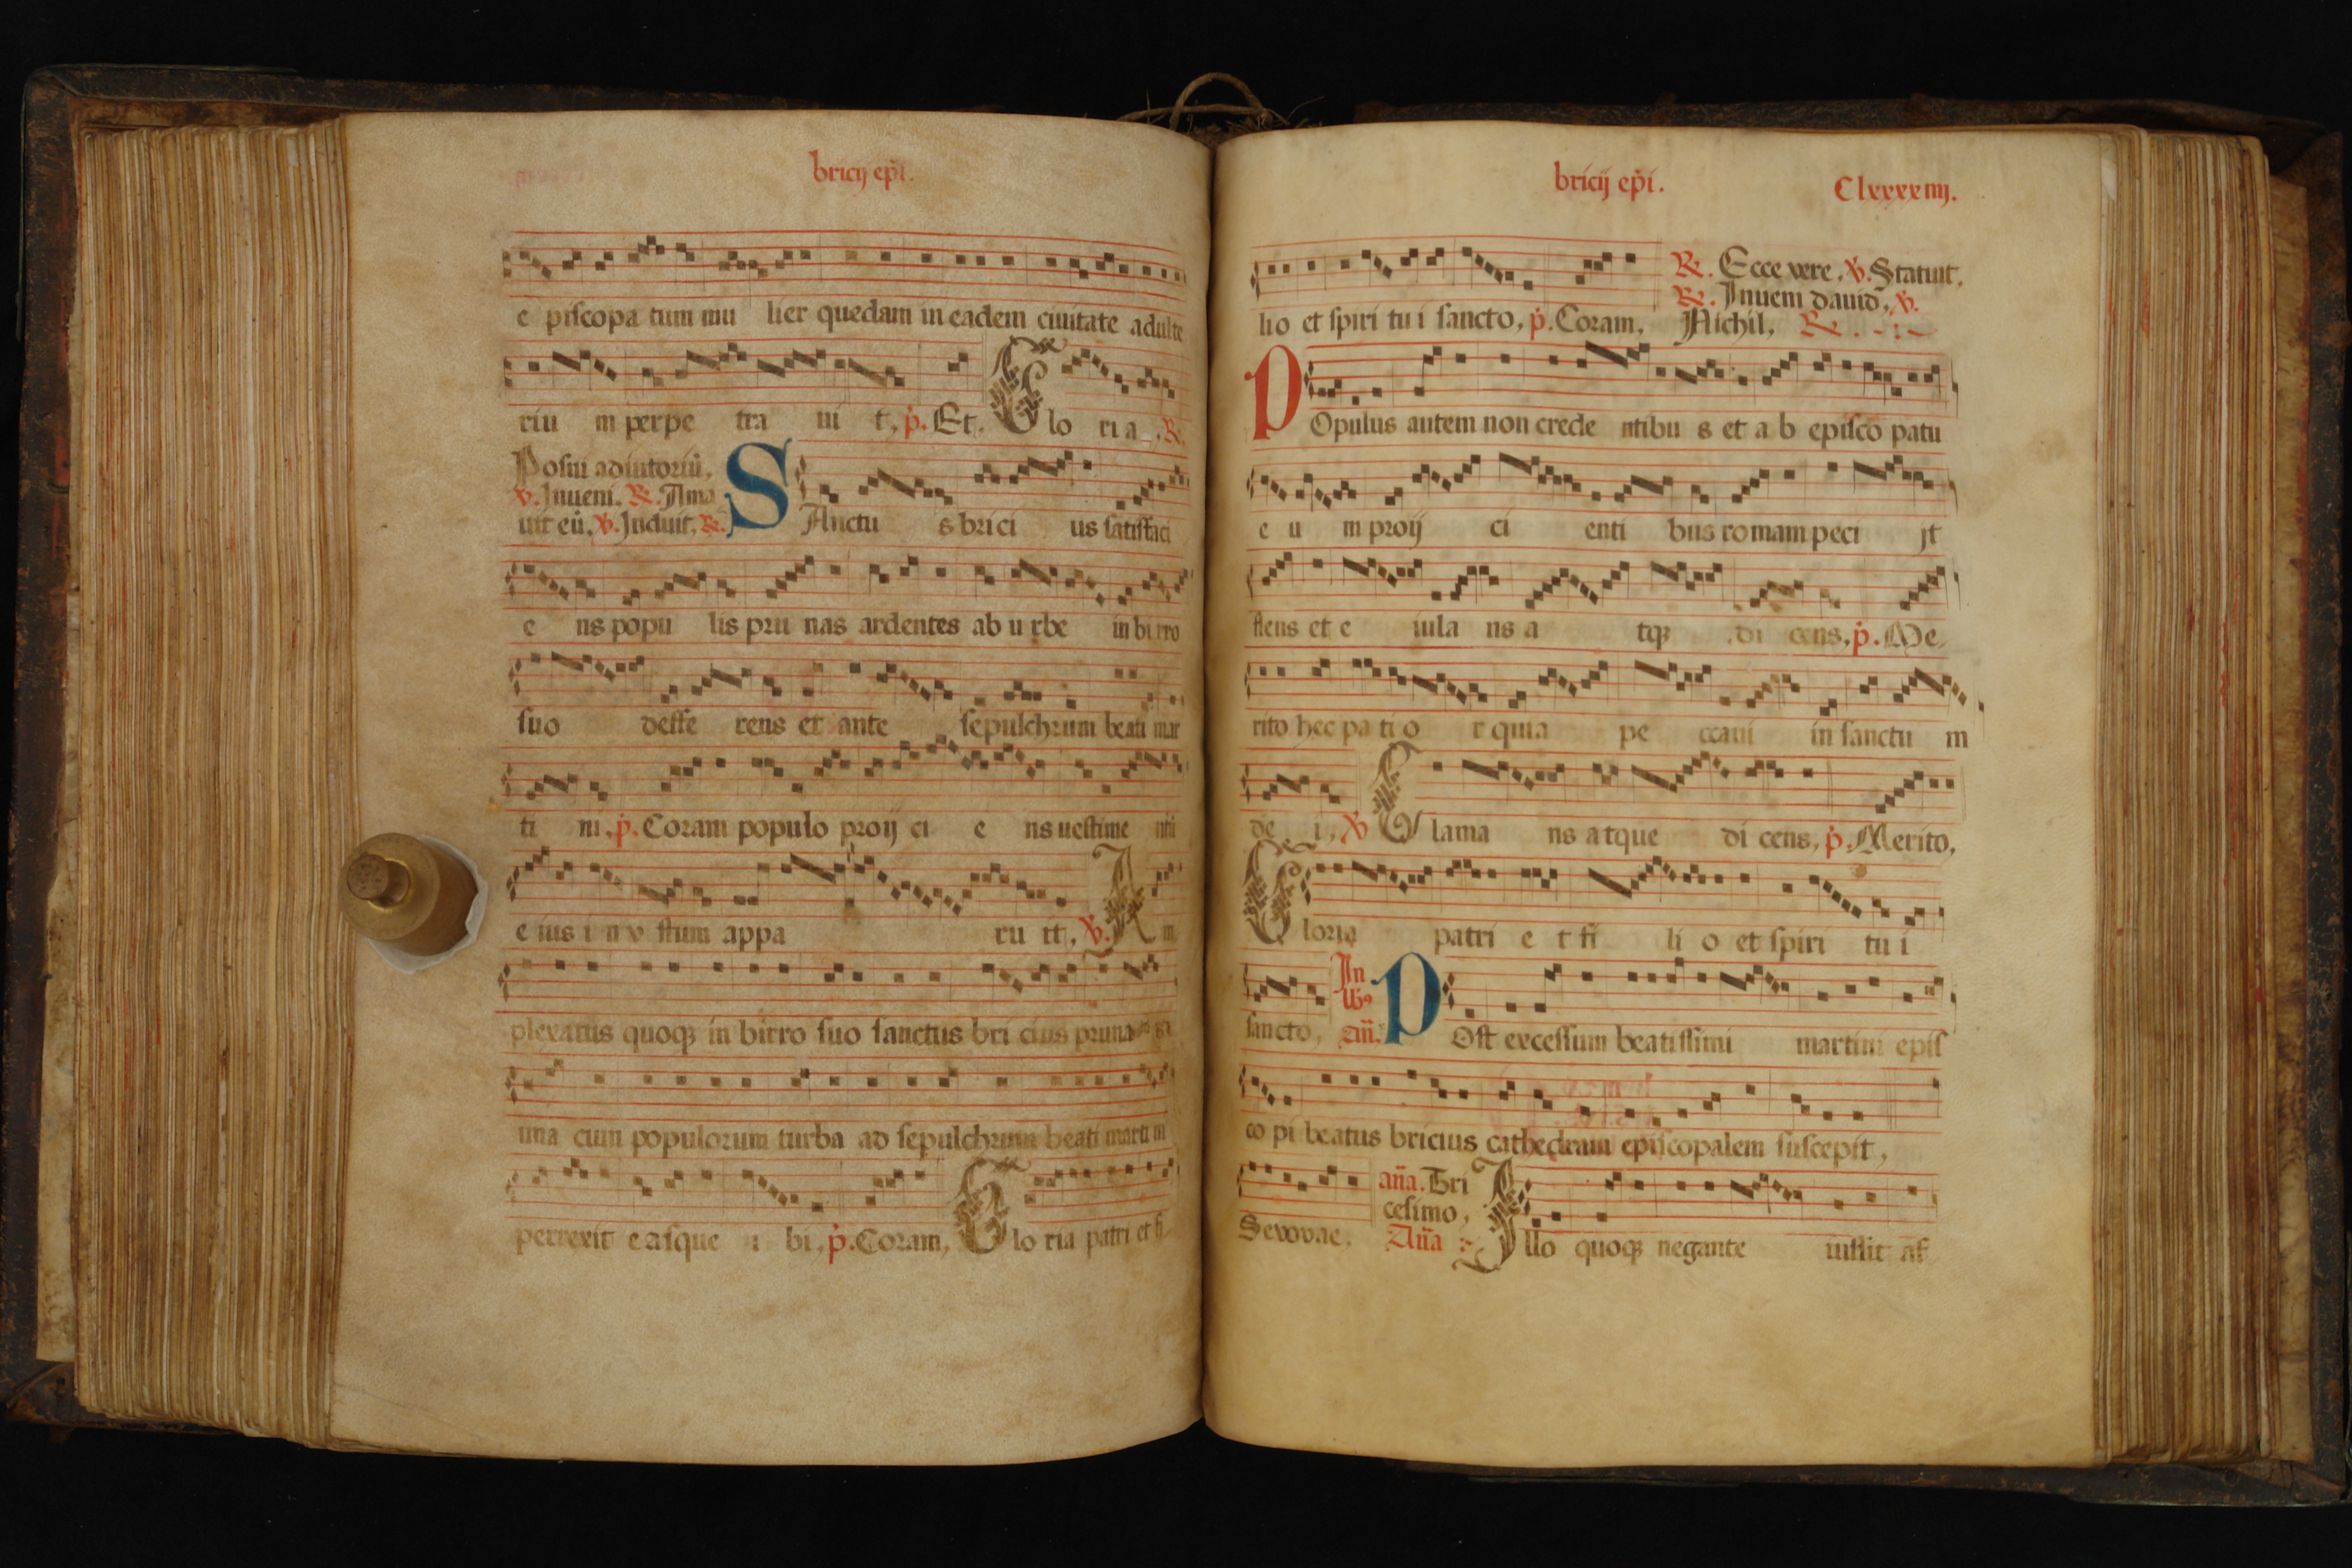 bricij epi.
e piscopa tum mu lier quedam in eadem ciuitate adulte
riu m perpe tra ui t, p. Et. Glo ri a. R.
Posui adiutoriu,
v. Inueni. R. Ama
uit eu, v. Induit, R. SAnctu s bri ci us satisfaci
e ns popu lis pru nas ardentes ab u rbe in bi rro
suo deffe rens et ante sepulchrum beati mar
ti ni. p. Coram populo proij ci e ns uestime ntu
e ius i n v stum appa ru it, v. Am
plexatus quoq; in birro suo sanctus bri cius pruna
una cum populorum turba ad sepulchrum beati marti ni
perrexit easque i bi, p. Coram, Glo ria patri et fi
bricij epi. Clxxxxiiij.
lio et spiri tu i sancto, p. Coram, R. Ecce vere, v. Statuit,
R. Inueni dauid, v.
Nichil, R.
POpulus autem non crede ntibu s et a b episco patu
e u m proij ci enti bus romam peci jt
flens et e iula ns a tq; di cens, p. Me
rito hec pa ti o r quia pe ccaui in sanctu m
de i, v. Clama ns atque di cens, p. Merito,
Gloria patri e t fi li o et spiri tu i
sancto, In
an. POst excessum beatissimi martini epis
co pi beatus bricius cathedram episcopalem suscepit,
Sevovae, ana. Tri
cesimo,
Ana Illo quoq; negante iussit af